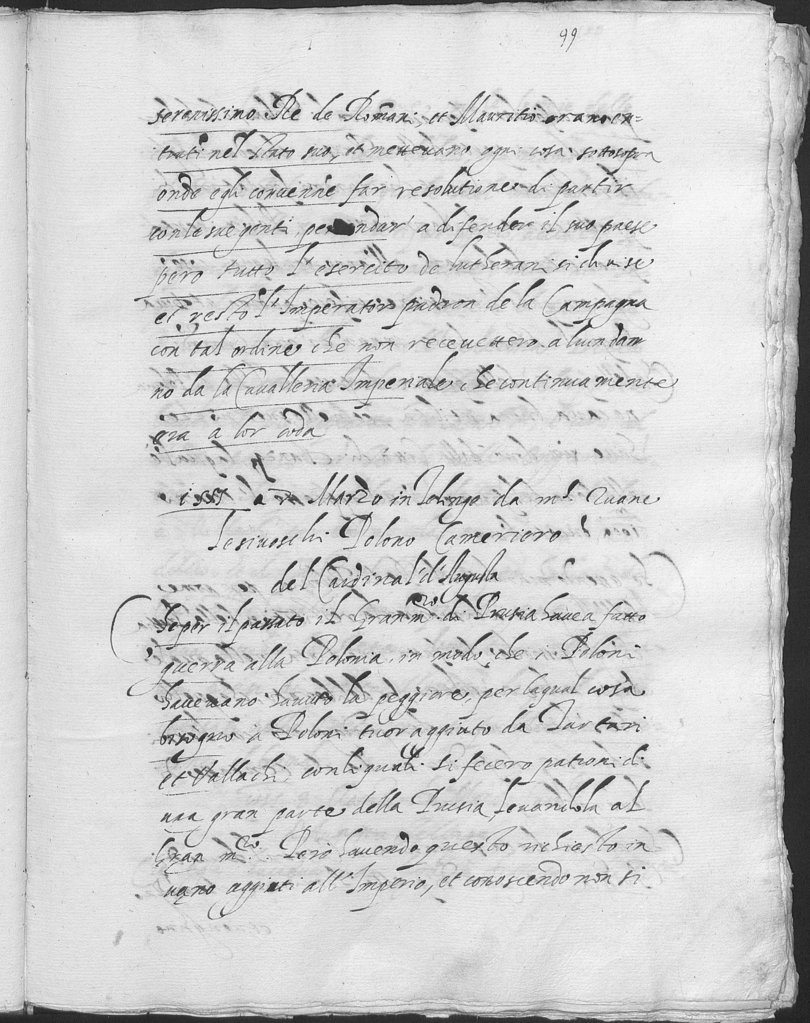 99
serenissimo Re de Romani, et Mauritio erano en=
trati nel stato suo, et mettevano ogni cosa sottosopra
onde egli convenne far resolutione di partir
con le sue genti, per andar a difender il suo paese
pero tutto l'esercito de lutherani si divise
et restò l'Imperator padron de la Campagna
con tal ordine che non receuettero alcun dan
no da la Cavalleria Imperiale che continuamente
era a lor coda
a Marzo in da m.r Zuane
Polono Cameriero
del Cardinal d'Augusta
Se per il passato il Gran m.ro di Prusia havea fatto
guerra alla Polonia, in modo, che i Poloni
havevano havuto la peggiore, per laqual cosa
bisogno a Poloni tuor aggiuto da Tartari
et Vallachi, con li quali si fecero patroni di
una gran parte della Prusia levandola al
Gran m.ro. Però havendo questo richiesto in
vano aggiuti all'Imperio, et conoscendo non si